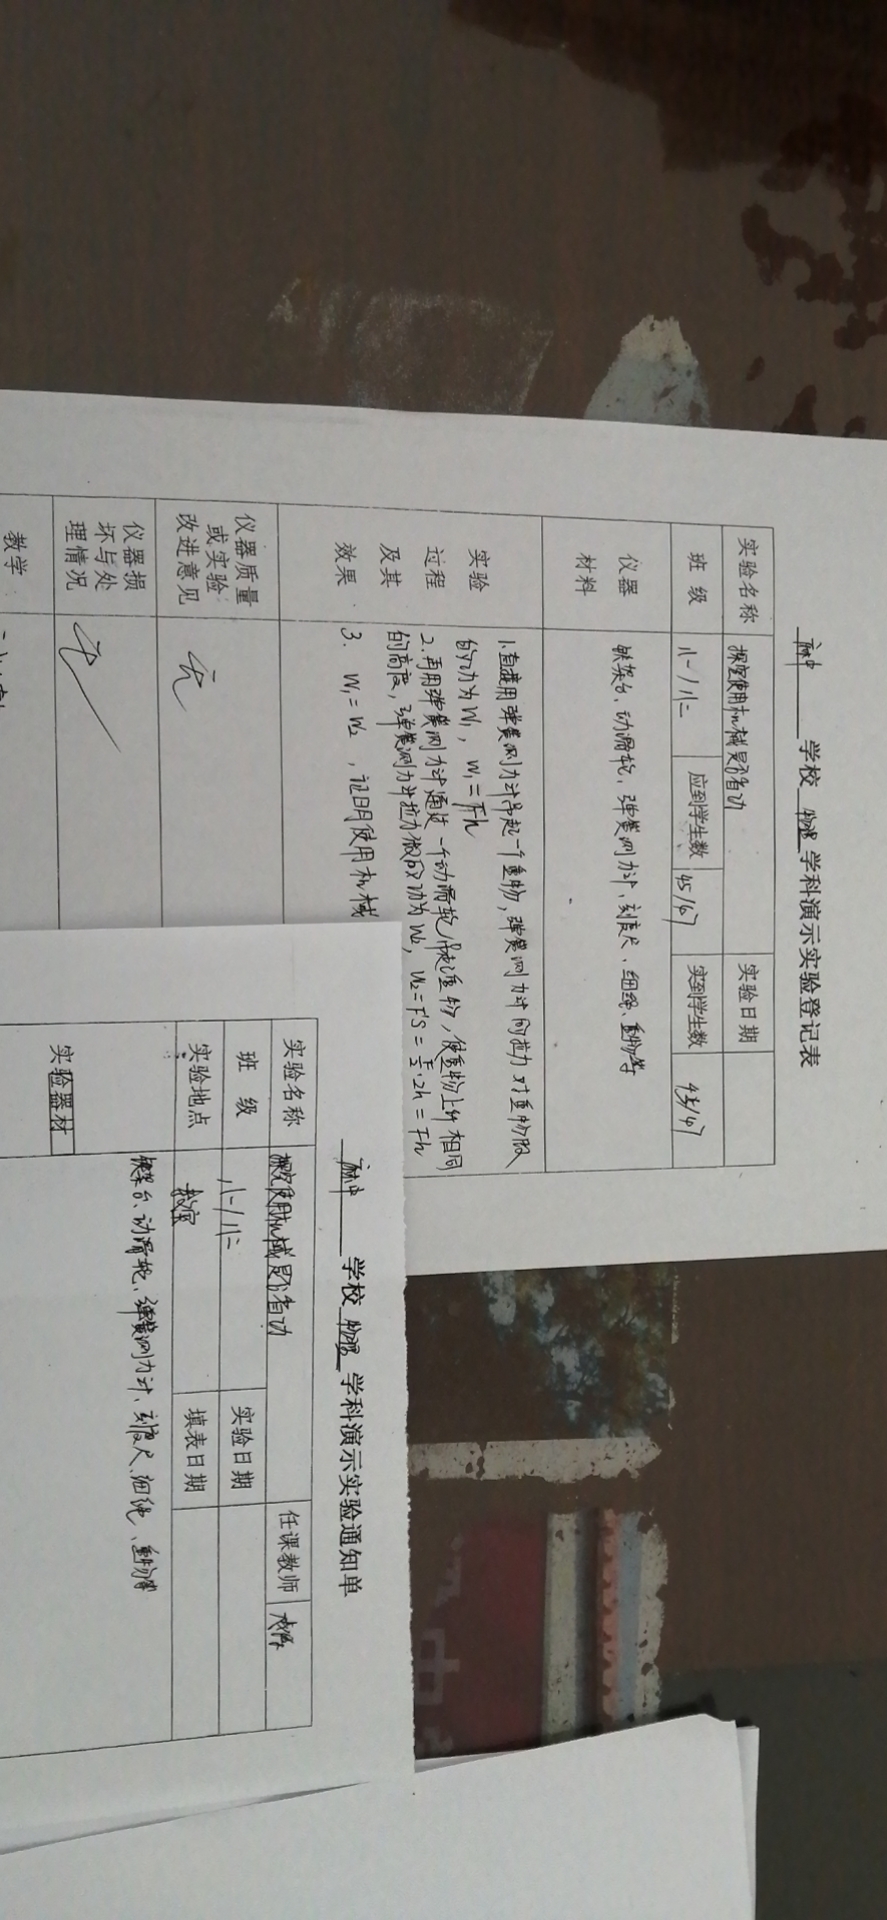 麻中 学校 物理 学科演示实验登记表
实验名称 探究使用机械是否省功 实验日期
班 级 八一/八二 应到学生数 45/47 实到学生数 45/47
仪器
材料
铁架台、动滑轮、弹簧测力计、刻度尺、细绳、重物等
实验
过程
及其
效果
1.直接用弹簧测力计吊起一个重物,弹簧测力计的拉力对重物做
的功为W₁, W₁=Fh
2.再用弹簧测力计通过一个动滑轮吊起重物,使重物上升相同
的高度,弹簧测力计拉力做的功为W₂, W₂=F'S=F/2·2h=Fh
3. W₁=W₂,证明使用机械
仪器质量
或实验
改进意见
无
仪器损
坏与处
理情况
无
教学
麻中 学校 物理 学科演示实验通知单
实验名称 探究使用机械是否省功 任课教师
班 级 八一/八二 实验日期
实验地点 教室 填表日期
实验器材
铁架台、动滑轮、弹簧测力计、刻度尺、细绳、重物等